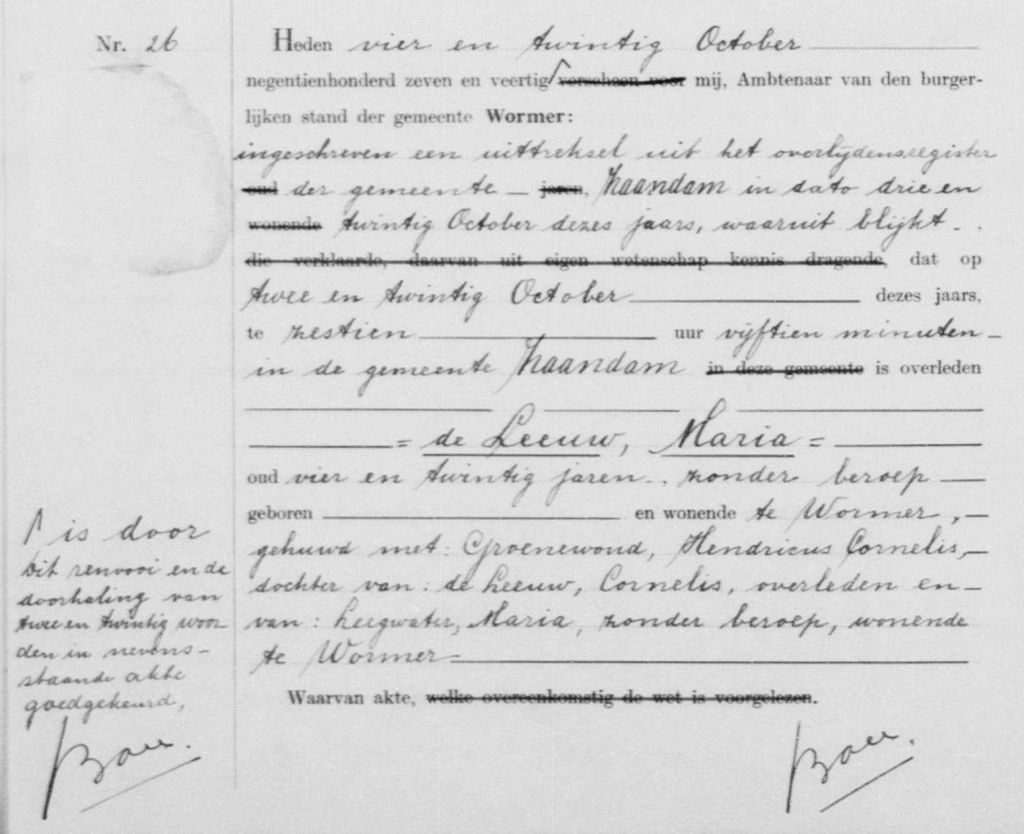 Nr. 26
Heden vier en twintig October
negentienhonderd zeven en veertig √ verscheen voor mij, Ambtenaar van den burger-
lijken stand der gemeente Wormer:
ingeschreven een uittreksel uit het overlijdensregister
oud der gemeente – jaren, Zaandam in dato drie en
wonende twintig October dezes jaars, waaruit blijkt -.
die verklaarde, daarvan uit eigen wetenschap kennis dragende, dat op
twee en twintig October dezes jaars,
te zestien uur vijftien minuten –
in de gemeente Zaandam in deze gemeente is overleden
= de Leeuw, Maria =
oud vier en twintig jaren -. zonder beroep
geboren en wonende te Wormer, –
gehuwd met: Groenewoud, Hendricus Cornelis, –
dochter van: de Leeuw, Cornelis, overleden en –
van: Leegwater, Maria, zonder beroep, wonende
te Wormer
Waarvan akte, welke overeenkomstig de wet is voorgelezen.
√ is door
Dit renvooi en de
doorhaling van
twee en twintig woor
den in nevens-
staande akte
goedgekeurd,